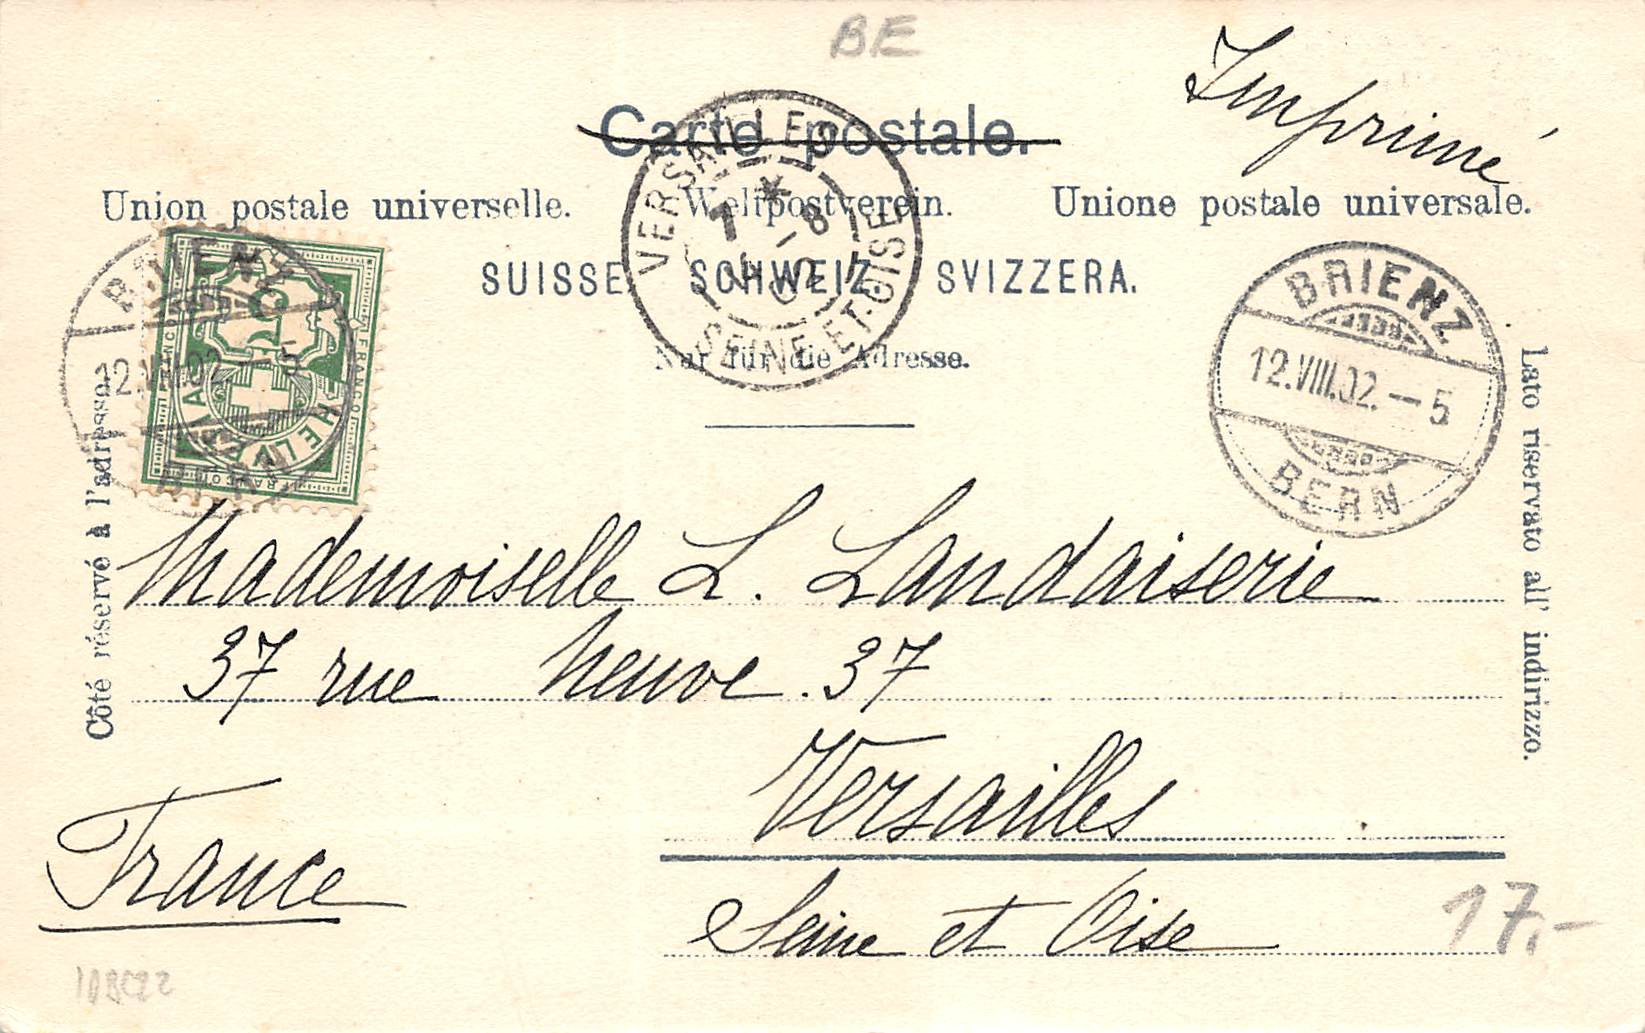 BE
Imprimé
Carte postale.
Union postale universelle. Weltpostverein. Unione postale universale.
SUISSE. SCHWEIZ. SVIZZERA.
Nur für die Adresse.
VERSAILLES
7 * 14 -8 02
SEINE-ET-OISE
BRIENZ
12.VIII.02.-5
BERN
BRIENZ
12.VIII.02.-5
BERN
FRANCO
5
HELVETIA
Côté réservé à l'adresse.
Lato riservato all' indirizzo.
Mademoiselle L. Landaiserie
37 rue neuve . 37
Versailles
France
Seine et Oise
17.-